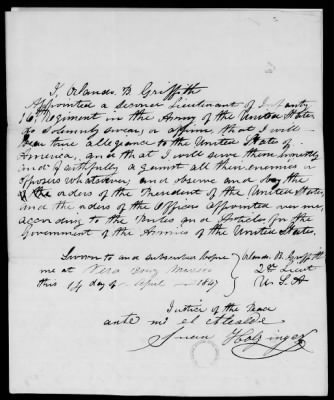 I, Orlando B Griffith
Appointed a second Lieutenant of Infantry
16th Regiment in the Army of the United States
do solemnly swear, or affirm that I will
bear true allegiance to the United States of
America, and that I will serve them honestly
and faithfully against all their enemies or
opposers whatever, and observe and obey the
the orders of the President of the United States
and the orders of the Officers appointed over me,
according to the Rules and Articles for the
Government of the Armies of the United States.
Sworn to and subscribed before
me at Vera Cruz Mexico
this 14 day of April 1847
Orlando B. Griffith
2nd Lieut
U. S. A
Justice of the Peace
ante mi el Alcalde
Juan Holzinger